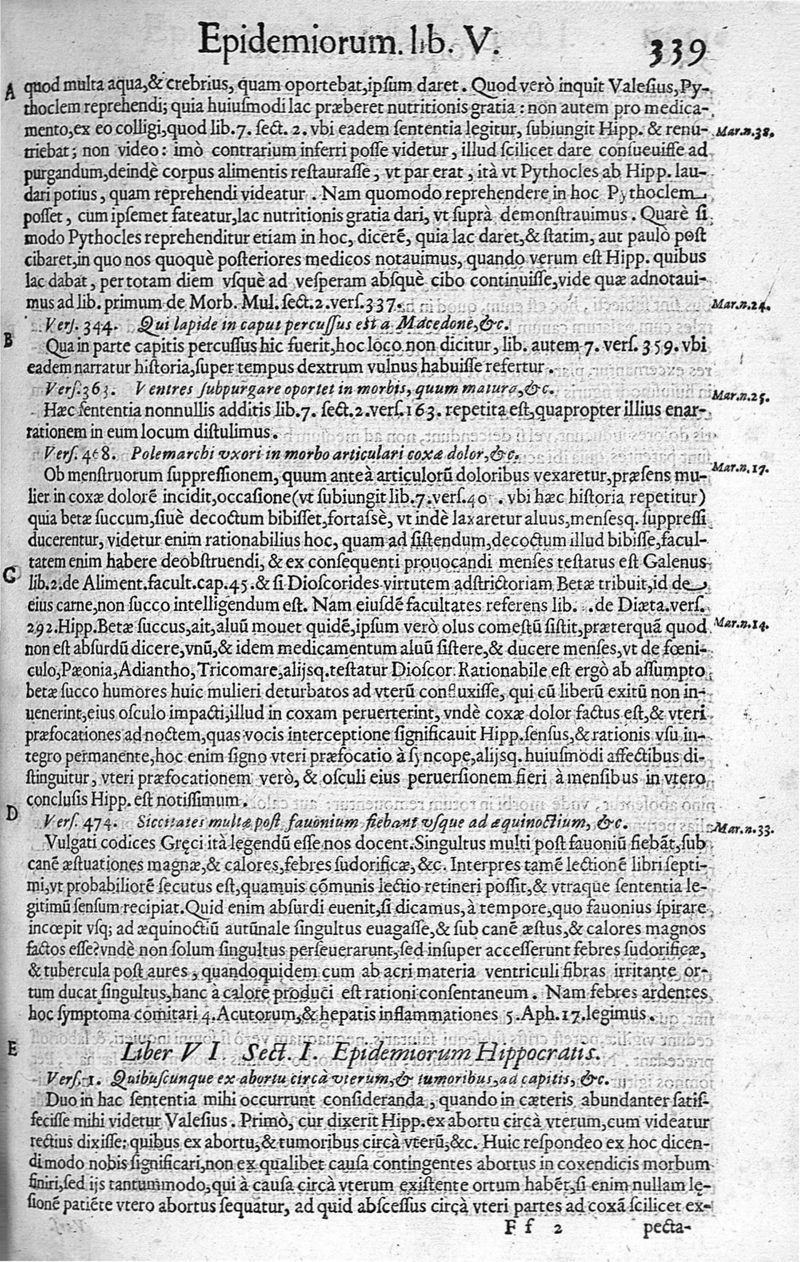 Epidemiorum. lib. V. 339
A quod multa aqua,& crebrius, quam oportebat,ipsum daret. Quod verò inquit Valesius,Py-
thoclem reprehendi; quia huiusmodi lac præberet nutritionis gratia: non autem pro medica-
mento,ex eo colligi,quod lib.7. sect. 2. vbi eadem sententia legitur, subiungit Hipp. & renu- Mar.n.38.
triebat; non video: imò contrarium inferri posse videtur, illud scilicet dare consueuisse ad
purgandum,deindè corpus alimentis restaurasse, vt par erat, ità vt Pythocles ab Hipp. lau-
dari potius, quam reprehendi videatur. Nam quomodo reprehendere in hoc Pythoclem
posset, cum ipsemet fateatur,lac nutritionis gratia dari, vt suprà demonstrauimus. Quarè si
modo Pythocles reprehenditur etiam in hoc, dicerẽ, quia lac daret,& statim, aut paulò post
cibaret,in quo nos quoquè posteriores medicos notauimus, quando verum est Hipp. quibus
lac dabat, per totam diem vsquè ad vesperam absquè cibo continuisse,vide quæ adnotaui-
mus ad lib. primum de Morb. Mul. sect.2. vers.337. Mar.n.24.
Vers. 344. Qui lapide in caput percussus est a Macedone,&c.
B Qua in parte capitis percussus hic fuerit,hoc loco non dicitur, lib. autem 7. vers. 359. vbi
eadem narratur historia,super tempus dextrum vulnus habuisse refertur.
Vers.363. Ventres subpurgare oportet in morbis, quum matura,&c. Mar.n.25.
Hæc sententia nonnullis additis lib.7. sect.2. vers.163. repetita est,quapropter illius enar-
rationem in eum locum distulimus.
Vers. 468. Polemarchi vxori in morbo articulari coxæ dolor,&c. Mar.n.17.
Ob menstruorum suppressionem, quum anteà articulorũ doloribus vexaretur,præsens mu-
lier in coxæ dolorẽ incidit,occasione(vt subiungit lib.7.vers.40 . vbi hæc historia repetitur)
quia betæ succum,siuè decoctum bibisset,fortassè, vt indè laxaretur aluus,mensesq. suppressi
ducerentur, videtur enim rationabilius hoc, quam ad sistendum,decoctum illud bibisse,facul-
C tatem enim habere deobstruendi, & ex consequenti prouocandi menses testatus est Galenus
lib.2.de Aliment.facult.cap.45.& si Dioscorides virtutem adstrictoriam Betæ tribuit,id de
eius carne,non succo intelligendum est. Nam eiusdẽ facultates referens lib. .de Diæta.vers.
292.Hipp.Betæ succus,ait,aluũ mouet quidẽ,ipsum verò olus comestũ sistit,præterquã quod Mar.n.14.
non est absurdũ dicere,vnũ,& idem medicamentum aluũ sistere,& ducere menses,vt de fœni-
culo,Pæonia,Adiantho,Tricomare,alijsq.testatur Dioscor. Rationabile est ergò ab assumpto
betæ succo humores huic mulieri deturbatos ad vterũ confluxisse, qui cũ liberũ exitũ non in-
uenerint,eius osculo impacti,illud in coxam peruerterint, vndè coxæ dolor factus est,& vteri
præfocationes ad noctem,quas vocis interceptione significauit Hipp.sensus,& rationis vsu in-
tegro permanente,hoc enim signo vteri præfocatio à syncope,alijsq. huiusmodi affectibus di-
stinguitur, vteri præfocationem verò, & osculi eius peruersionem fieri à mensibus in vtero
conclusis Hipp. est notissimum.
D Vers. 474. Siccitates multæ post fauonium fiebant vsque ad æquinoctium, &c. Mar.n.33.
Vulgati codices Gręci ità legendũ esse nos docent.Singultus multi post fauoniũ fiebãt,sub
canẽ æstuationes magnæ,& calores,febres sudorificæ,&c. Interpres tamẽ lectionẽ libri septi-
mi,vt probabiliorẽ secutus est,quamuis cõmunis lectio retineri possit,& vtraque sententia le-
gitimũ sensum recipiat.Quid enim absurdi euenit,si dicamus,à tempore,quo fauonius spirare
incœpit vsq; ad æquinoctiũ autũnale singultus euagasse,& sub canẽ æstus,& calores magnos
factos esse?vndè non solum singultus perseuerarunt,sed insuper accesserunt febres sudorificæ,
& tubercula post aures, quandoquidem cum ab acri materia ventriculi fibras irritante or-
tum ducat singultus,hanc à calore produci est rationi consentaneum. Nam febres ardentes
hoc symptoma comitari 4.Acutorum,& hepatis inflammationes 5.Aph.17.legimus.
E Liber VI. Sect. I. Epidemiorum Hippocratis.
Vers.1. Quibuscunque ex abortu circà vterum,& tumoribus,ad capitis,&c.
Duo in hac sententia mihi occurrunt consideranda, quando in cæteris abundanter satis-
fecisse mihi videtur Valesius. Primò, cur dixerit Hipp.ex abortu circà vterum,cum videatur
rectius dixisse: quibus ex abortu,& tumoribus circà vterũ,&c. Huic respondeo ex hoc dicen-
di modo nobis significari,non ex qualibet causa contingentes abortus in coxendicis morbum
finiri,sed ijs tantummodo,qui à causa circà vterum existente ortum habẽt,si enim nullam lę-
sionẽ patiẽte vtero abortus sequatur, ad quid abscessus circà vteri partes ad coxã scilicet ex-
F f 2 pecta-